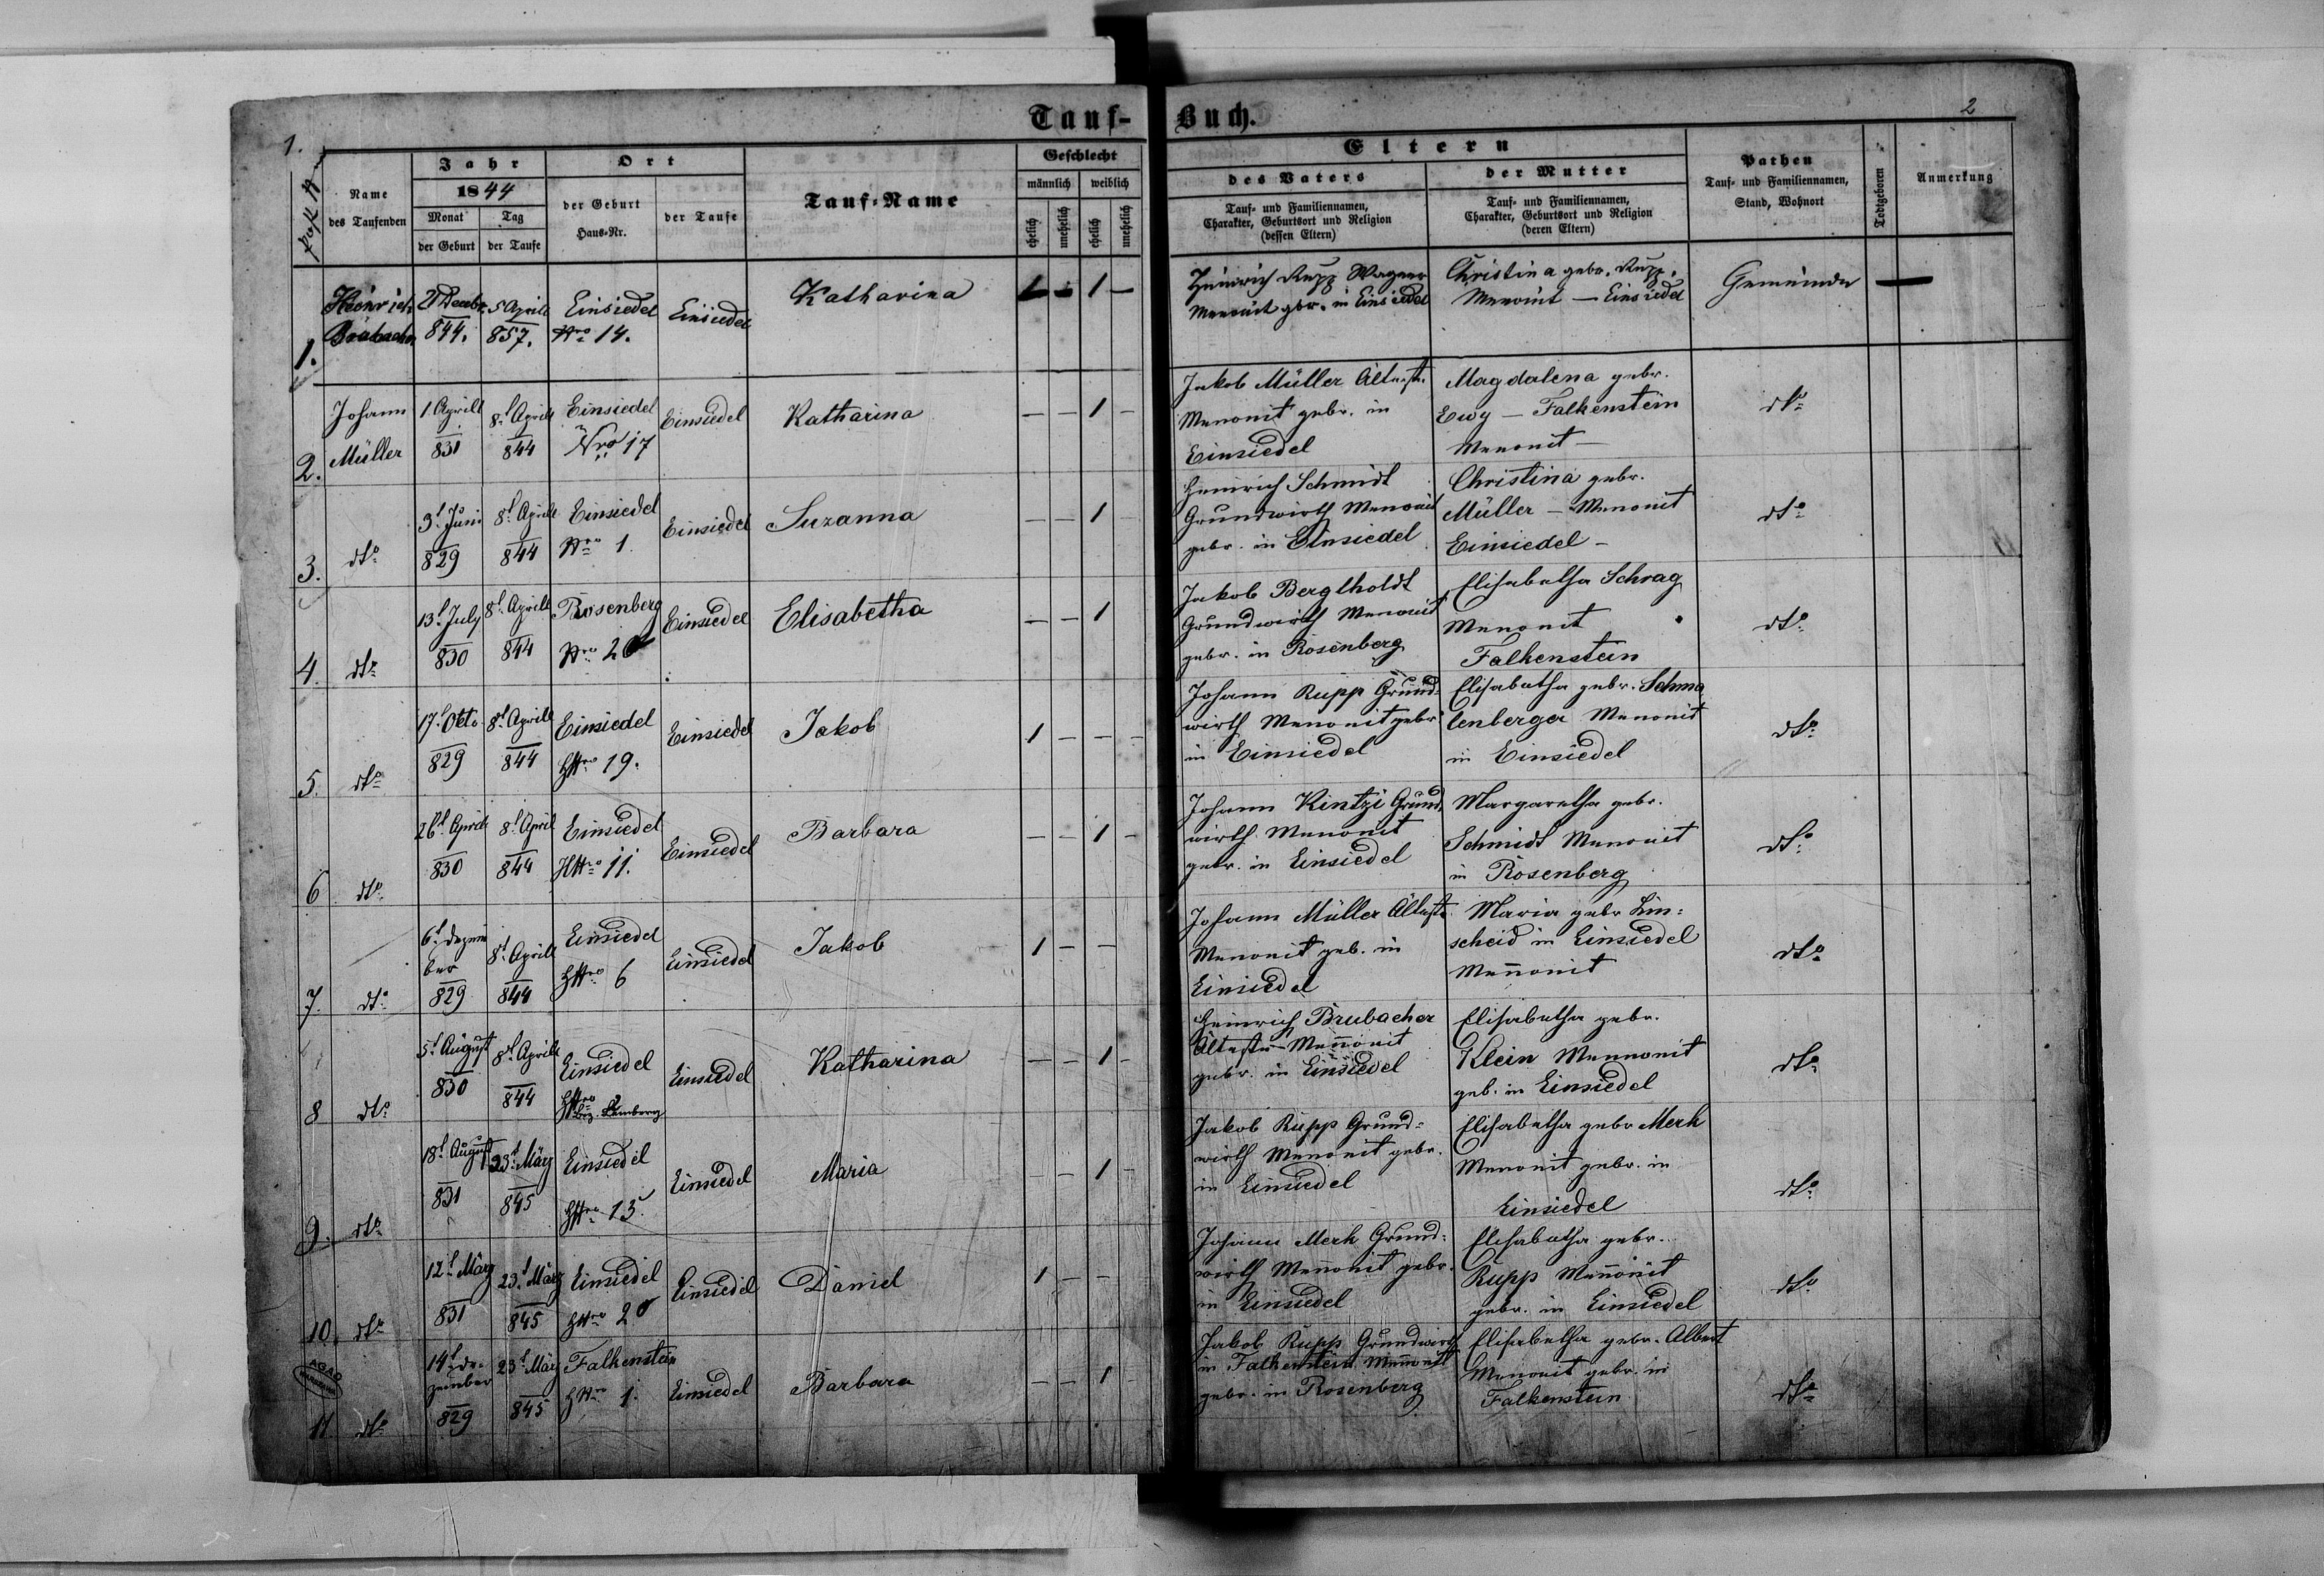 Tauf-Buch.
1.
2
Name des Taufenden
Jahr
1844
Monat der Geburt
Tag der Taufe
Ort
der Geburt Haus-Nr.
der Taufe
Tauf-Name
Geschlecht
männlich
weiblich
ehelich
unehelich
ehelich
unehelich
Eltern
des Vaters
Tauf- und Familiennamen,
Charakter, Geburtsort und Religion
(dessen Eltern)
der Mutter
Tauf- und Familiennamen,
Charakter, Geburtsort und Religion
(deren Eltern)
Pathen
Tauf- und Familiennamen,
Stand, Wohnort
Todtgeboren
Anmerkung
1. Heinrich 5 April Einsiedel Einsiedel Katharina 1 – 1 –
844. 857. Nro 14.
Heinrich Rupp Wagner
Menonit gbr. in Einsiedel
Christina gebr. Rupp.
Menonit — Einsiedel
Gemeinde —
2. Johann Müller
1 Aprill 831
8t Aprill 844
Einsiedel Nro 17
Einsiedel
Katharina
– – 1 –
Jakob Müller Älteste.
Menonit gebr. in
Einsiedel
Magdalena gebr.
Ewy — Falkenstein
Menonit —
dto
3. dto
3t Juni 829
8t Aprill 844
Einsiedel Nro 1.
Einsiedel
Suzanna
– – 1
Heinrich Schmidt
Grundwirth Menonit
gebr. in Einsiedel
Christina gebr.
Müller — Menonit
Einsiedel –
dto
4. dto
13t July 830
8t Aprill 844
Rosenberg
Einsiedel
Elisabetha
– – 1
Jakob Berglholdt
Grundwirth Menonit
gebr. in Rosenberg
Elisabetha Schrag
Menonit
Falkenstein
dto
5. dto
17t Octo. 829
8t Aprill 844
Einsiedel HNro 19.
Einsiedel
Jakob
1 – – –
Johann Rupp Grund-
wirth Menonit gebr.
in Einsiedel
Elisabetha gebr. Schma
lenberger Menonit
in Einsiedel
dto
6 dto
26t Aprill 830
8t April 844
Einsiedel HNro 11.
Einsiedel
Barbara
– – 1 –
Johann Kintzi Grund.
wirth Menonit
gebr. in Einsiedel
Margaretha gebr.
Schmidt Menonit
in Rosenberg
dto
7. dto
6t Dezem
ber 829
8t Aprill 844
Einsiedel HNro 6
Einsiedel
Jakob
1 – –
Johann Müller Älteste
Menonit geb. in
Einsiedel
Maria gebr Lin:
scheid in Einsiedel
Menonit
dto
8 dto
5t August 830
8t Aprill 844
Einsiedel HNro
Einsiedel
Katharina
– – 1 –
Heinrich Brubacher
Älteste Menonit
gebr. in Einsiedel
Elisabetha gebr.
Klein Mennonit
geb. in Einsiedel
dto
9. dto
18t August 831
23t März 845
Einsiedel HNro 13.
Einsiedel
Maria
– – 1 –
Jakob Rupp Grund-
wirth Menonit gebr.
in Einsiedel
Elisabetha gebr Merk
Menonit gebr. in
Einsiedel
dto
10. dto
12t März 831
23t März 845
Einsiedel HNro 20
Einsiedel
Daniel
1 – –
Johann Merk Grund:
wirth Menonit gebr.
in Einsiedel
Elisabetha gebr.
Rupp Menonit
gebr. in Einsiedel
dto
11 dto
14t De-
zember 829
23t März 845
Falkenstein HNro 1.
Einsiedel
Barbara
– – 1 –
Jakob Rupp Grundwirth
in Falkenstein Menonit
gebr. in Rosenberg
Elisabetha gebr. Albert
Menonit gebr. in
Falkenstein
dto
AGAD